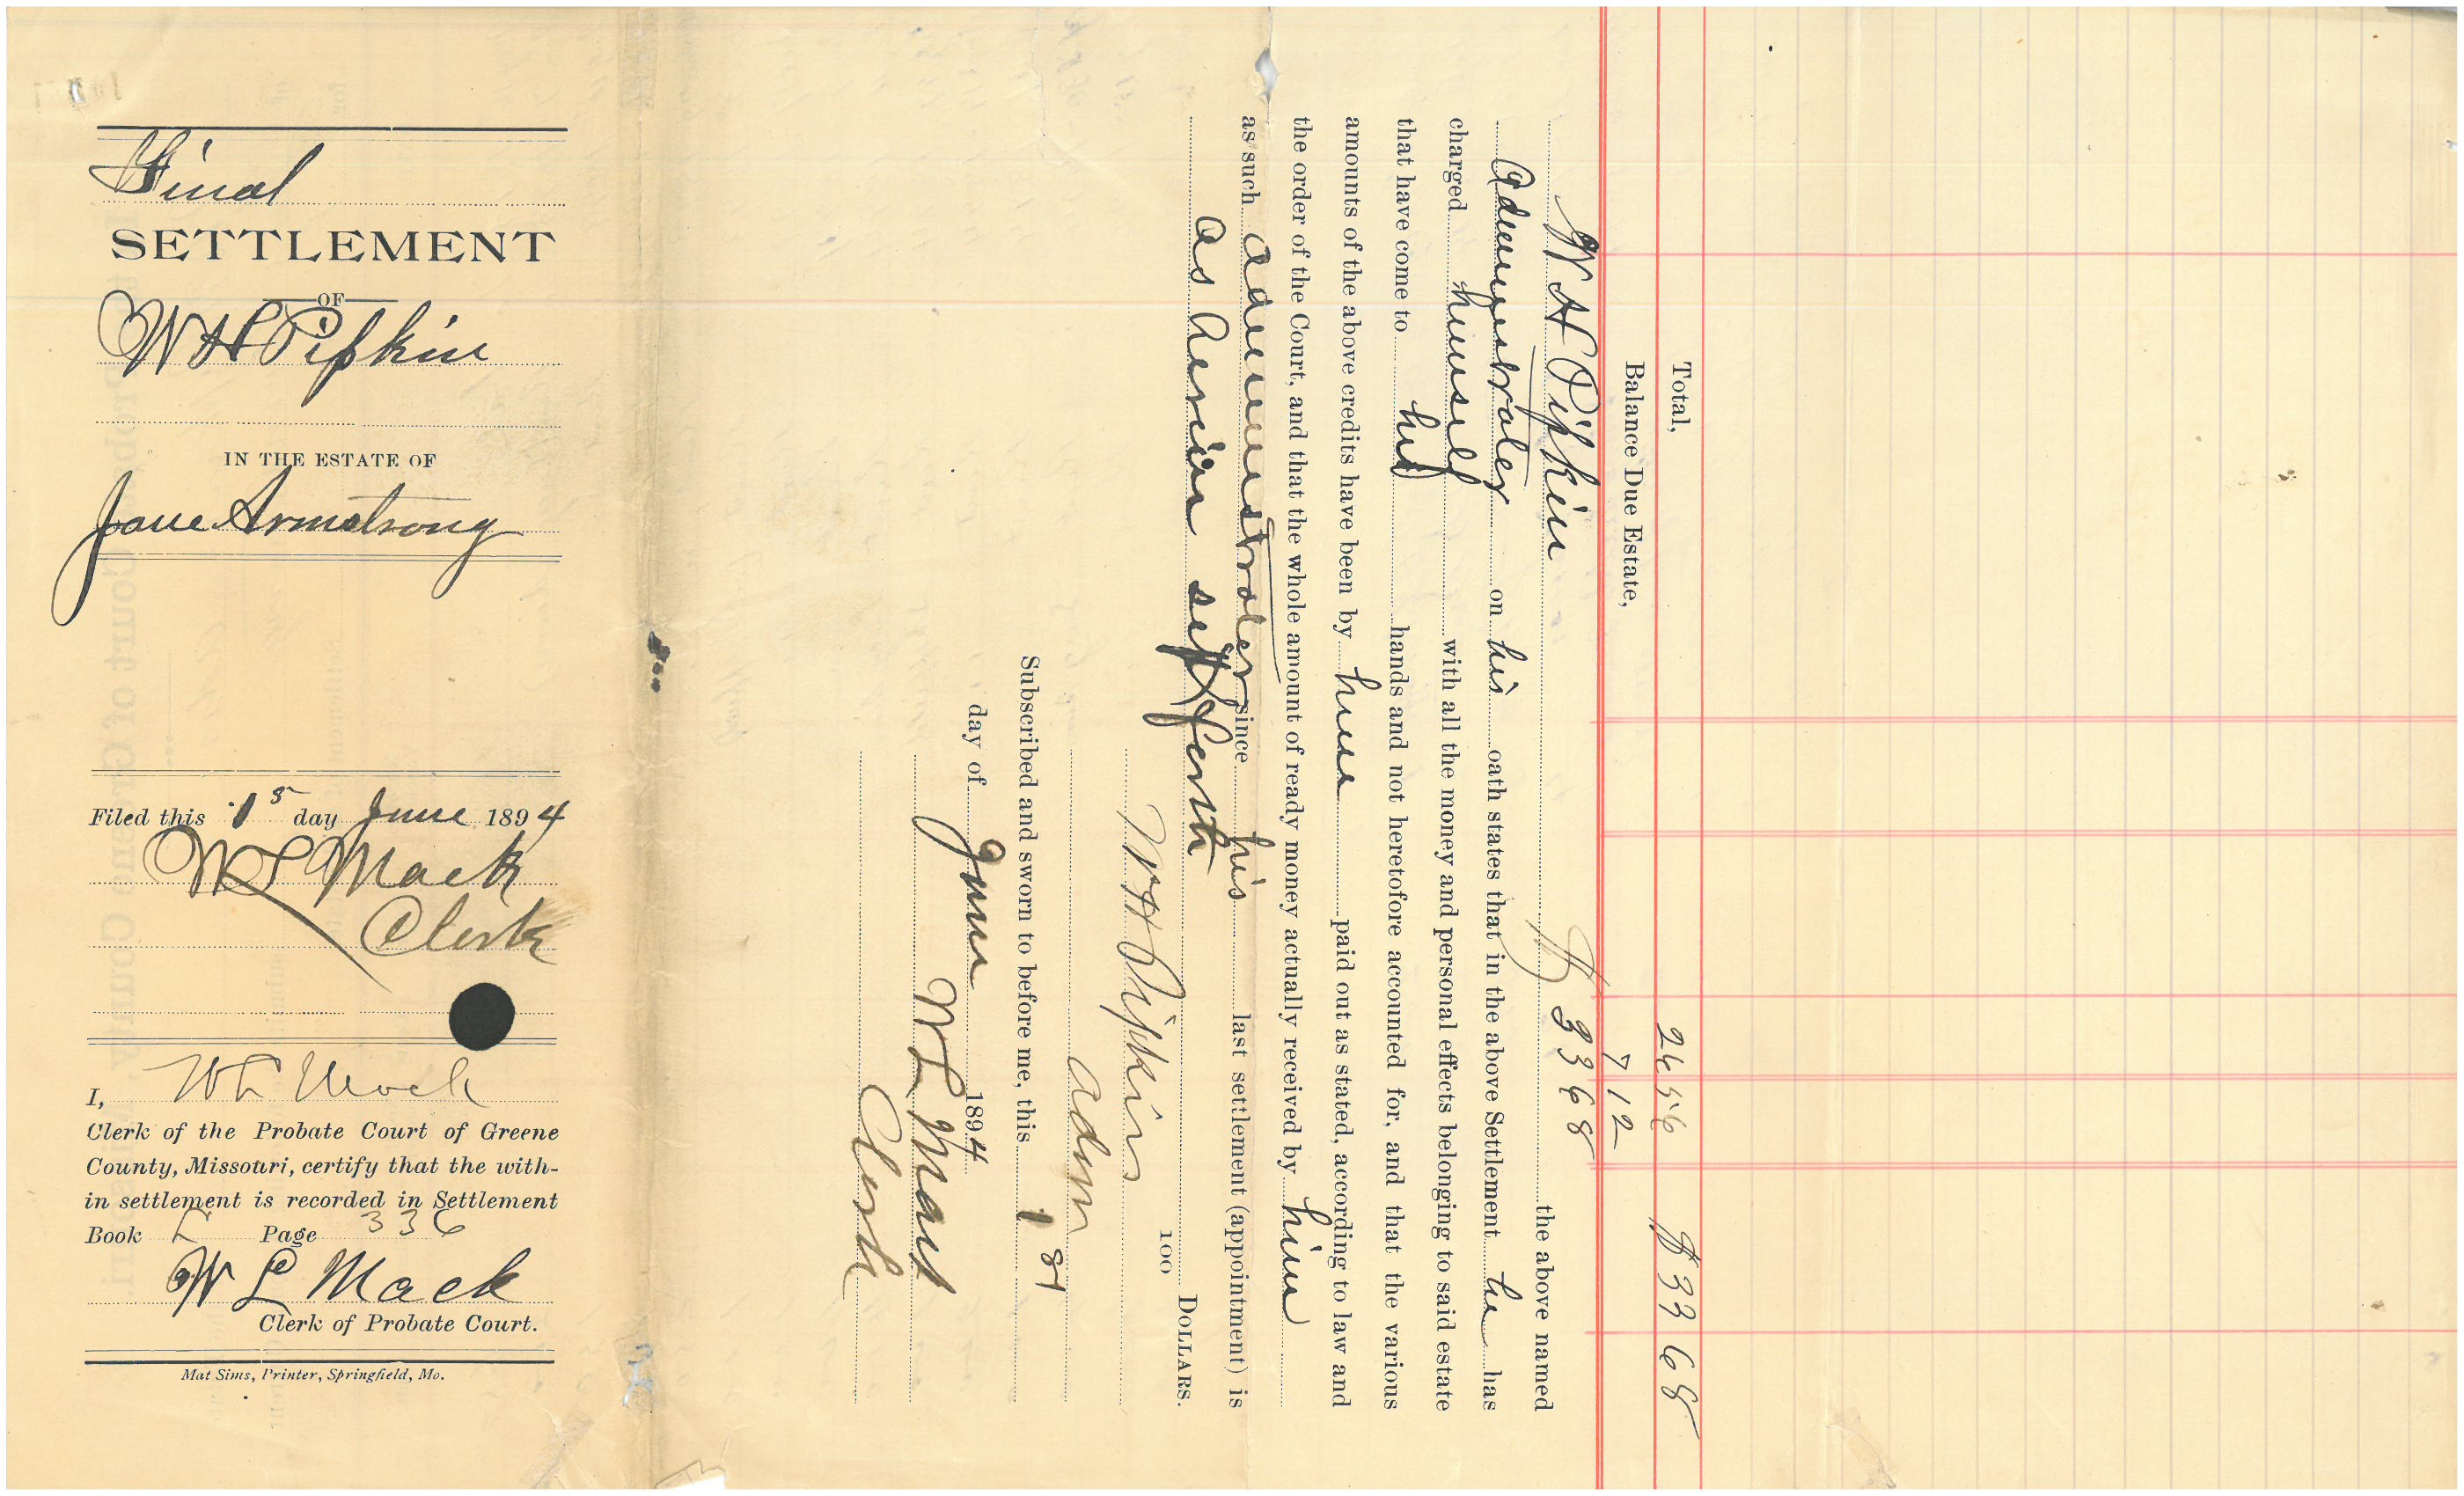 Final
SETTLEMENT
OF
W H Pipkin
IN THE ESTATE OF
Jane Armstrong
Filed this 1st day June 1894
W L Mack
Clerk
I, W L Mack
Clerk of the Probate Court of Greene
County, Missouri, certify that the with-
in settlement is recorded in Settlement
Book L Page 336
W L Mack
Clerk of Probate Court.
Mat Sims, Printer, Springfield, Mo.
Total, 24 56 $ 33 68
Balance Due Estate, 7 12
$ 33 68
W H Pipkin the above named
Administrater on his oath states that in the above Settlement he has
charged himself with all the money and personal effects belonging to said estate
that have come to his hands and not heretofore accounted for, and that the various
amounts of the above credits have been by him paid out as stated, according to law and
the order of the Court, and that the whole amount of ready money actually received by him
as such administrater since his last settlement (appointment) is
as herein set forth
100 DOLLARS.
W H Pipkin
Admr
Subscribed and sworn to before me, this 1st
day of June 1894
W L Mack
Clerk